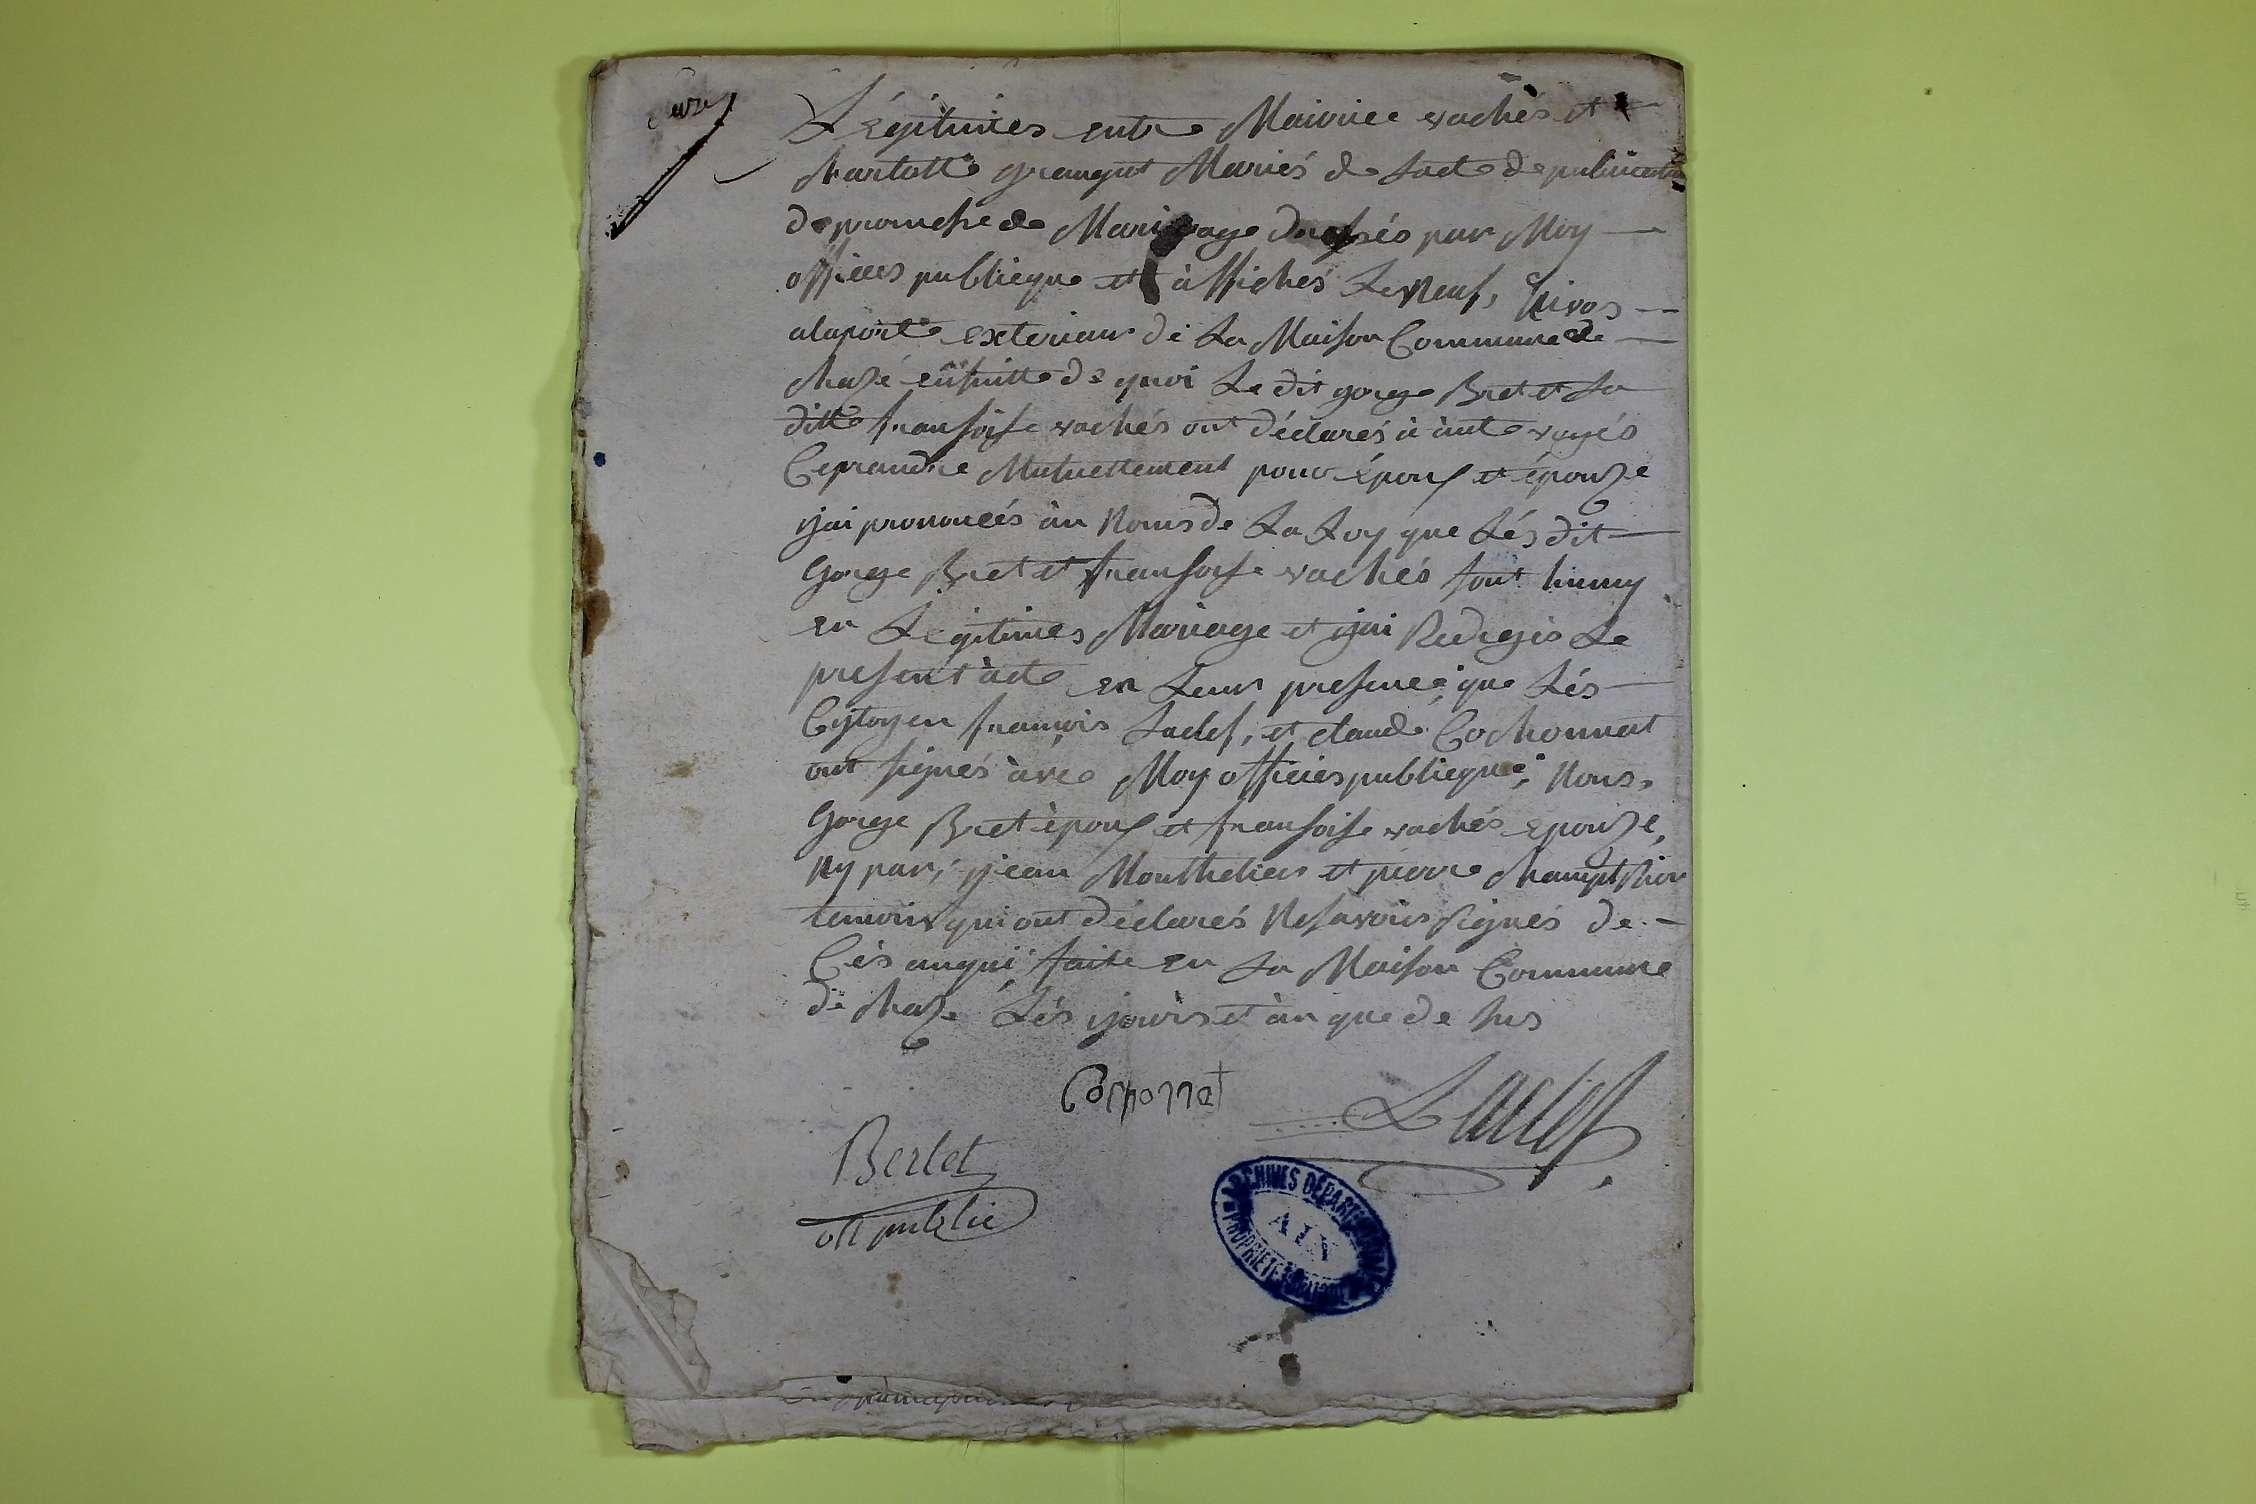 Légitimes entre Mairiice vachés et
charlotte grangut Mariés de Lacte de publication
de promesse de Mariage dressés par Moy
officies publieque et àffichés Le Neuf, Nivos
alaporte exterieur de La Maison Commune de
chazé ensuitte de quoi Le dit gorge Bret et La
ditte fransoise vachés ont déclarés à aute voyés
Ceprandre Mutuellement pour épous et épouze
ijai prononcés àu Noms de La Loy que Lés dit
Gorge Bret et fransoise vachés sont hunny
en Légitimes Mariage et ijai Redigés Le
presentàcte en Leur presence que Lés
Cytoyen francois Laclef, et claude Cochonnat
ont signés àvec Moy officies publieque; Nous,
Gorge Bret èpous et fransoise vachés epouze,
Ny par, ijean Monthelier et pierre
temoins qui ont déclarés Nesavoirs signés de
Cés anqui faite en La Maison Commune
de chaze Lés ijours et àn que de sus
Cochonnat
Laclef
Berlet
off public
ARCHIVES DÉPARTEMENTALES
AIN
PROPRIÉTÉ PUBLIQUE